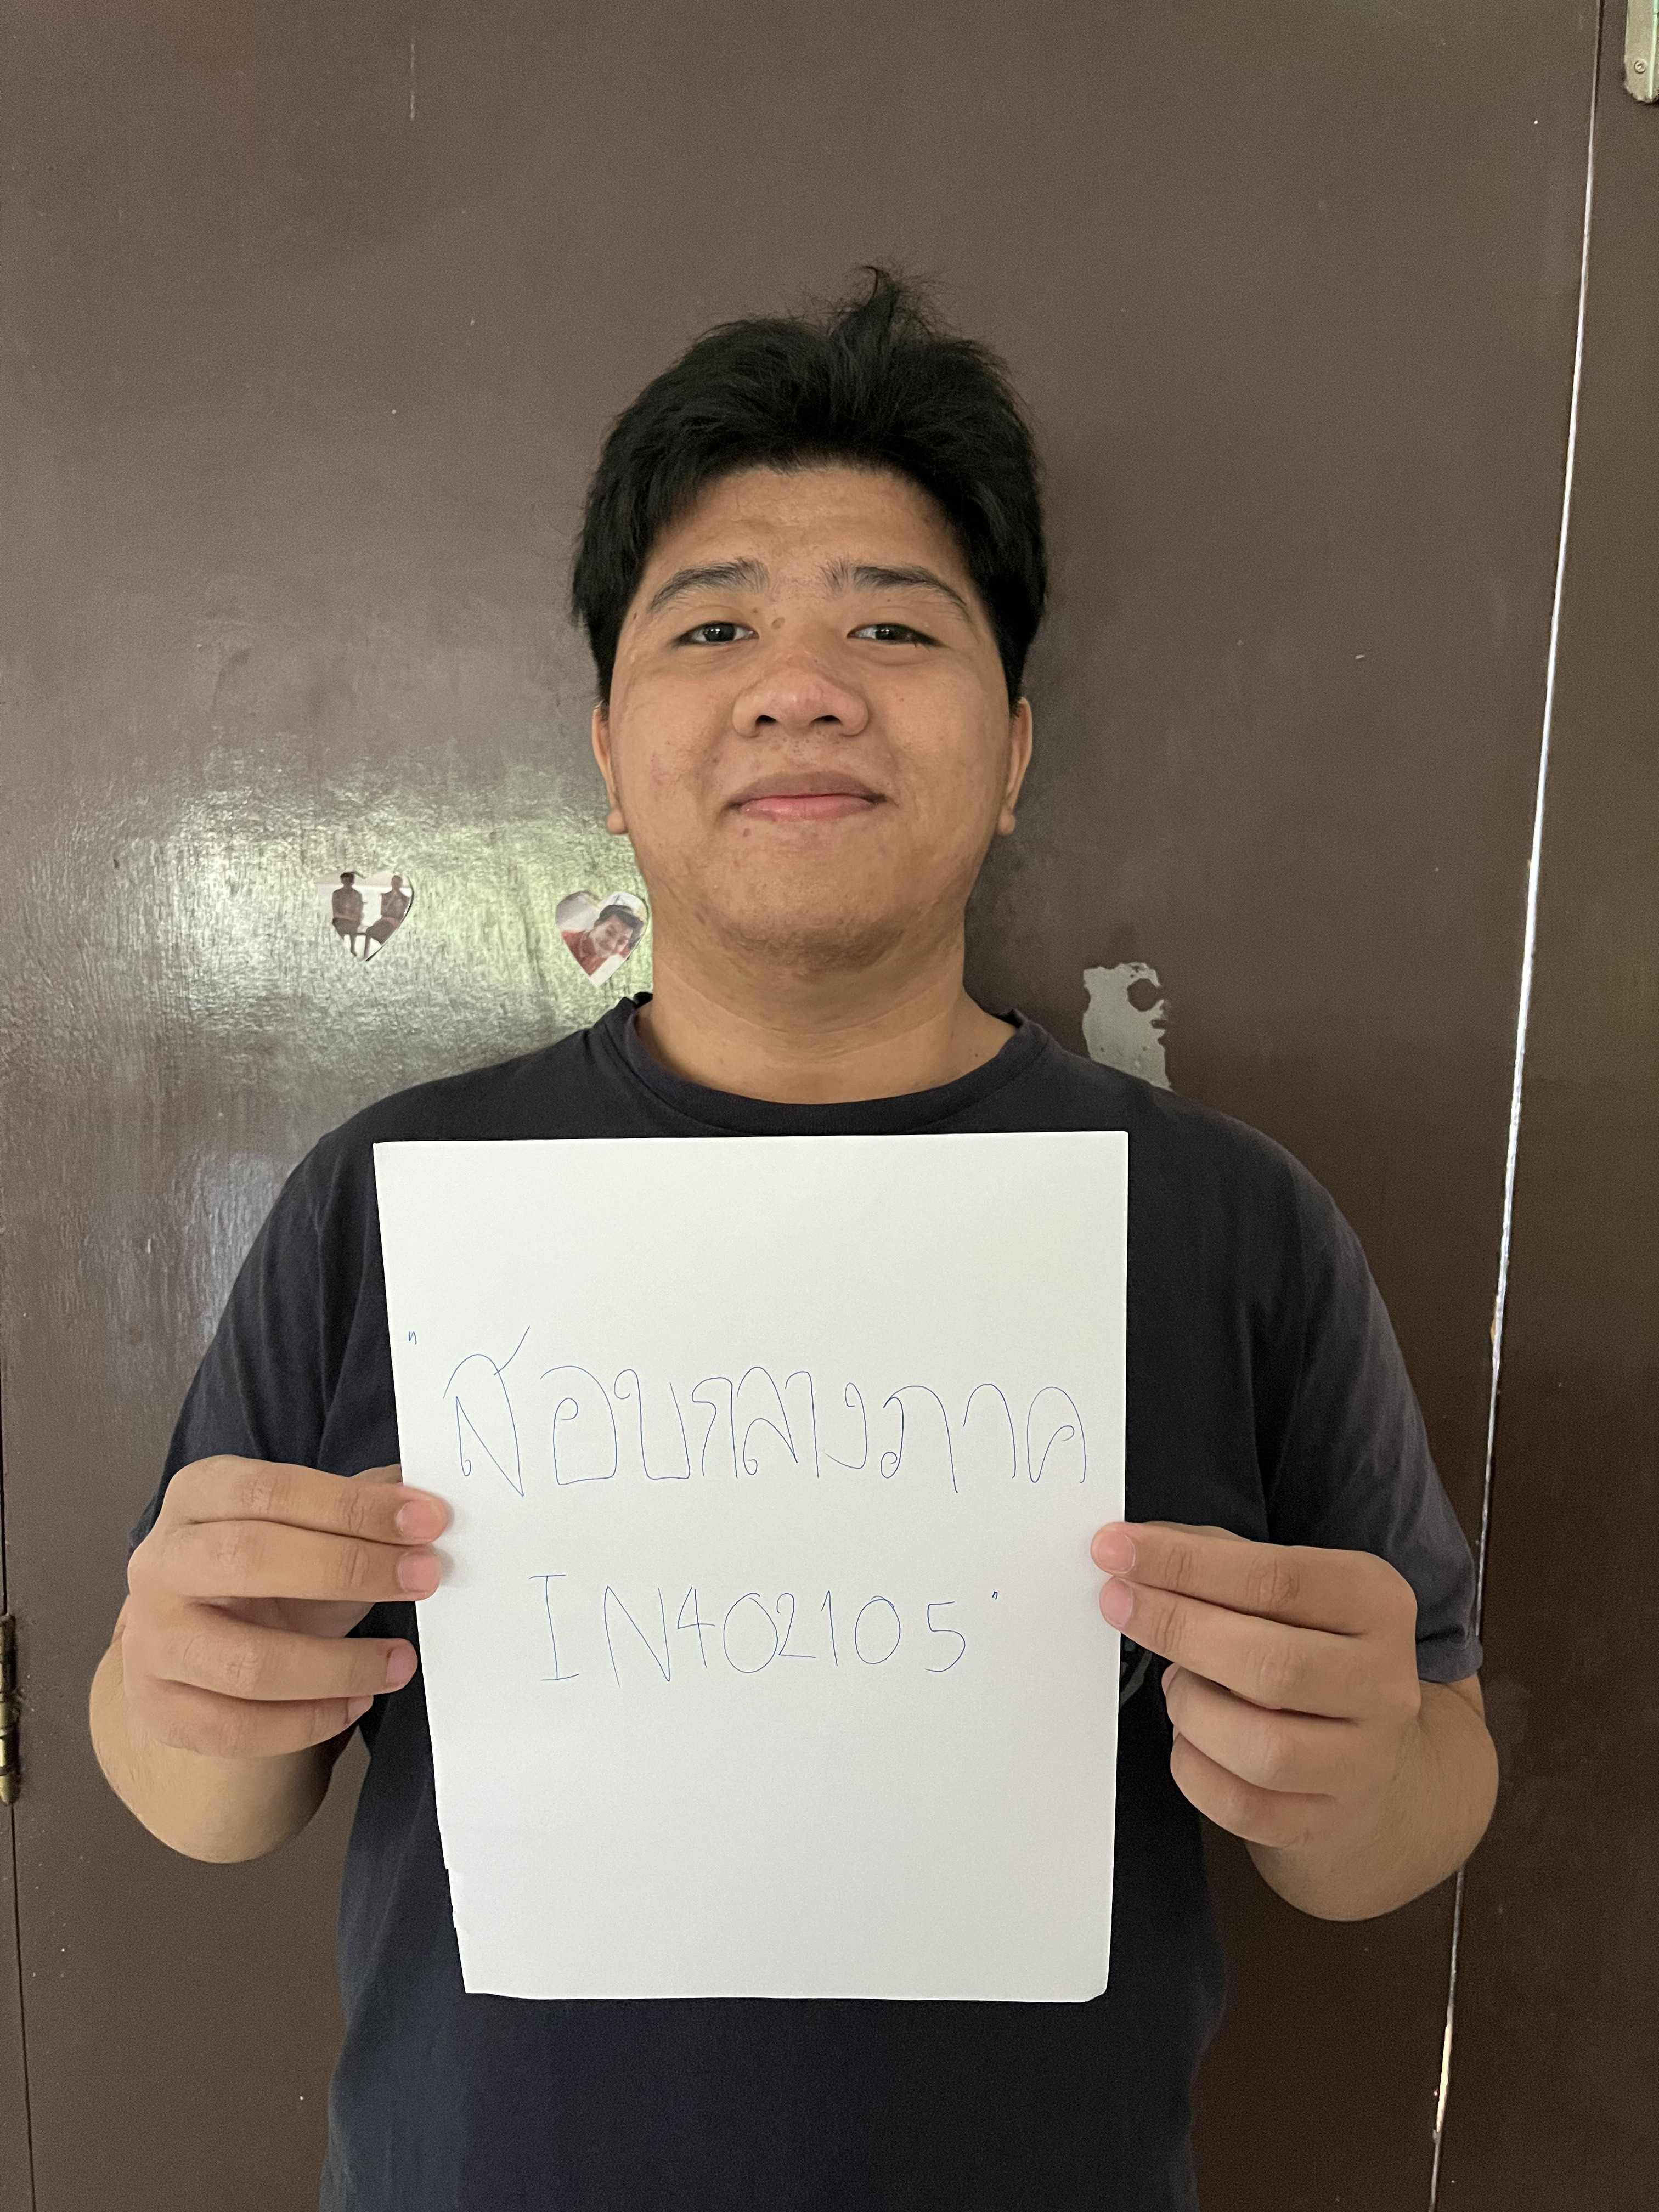 "สอบกลางภาค
IN402105"